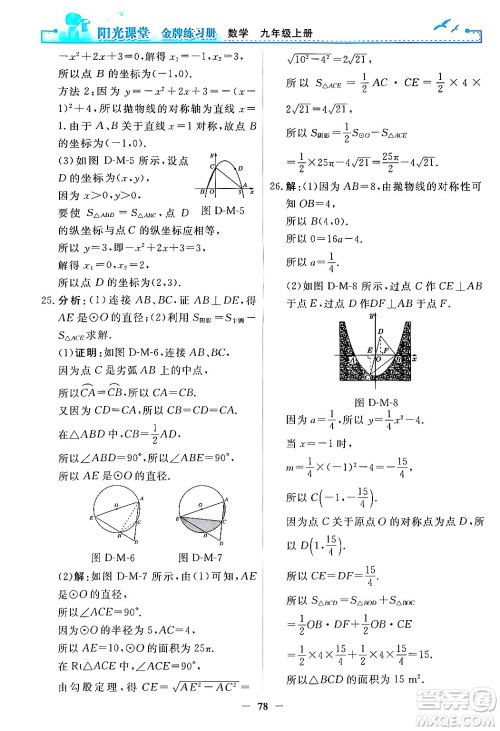 阳光课堂 金牌练习册 数学 九年级上册
-x²+2x+3=0.
解得 x₁=-1,x₂=3.
所以点 B 的坐标为(-1,0).
方法 2:因为 a=-1,b=2,
所以抛物线的对称轴为直线 x=
1.由于 A、B 关于直线 x=1 对称,
所以点 B 的坐标为(-1,0).
(3)如图 D-M-5,设点
D 的坐标为(x,y).
因为 x>0,y>0,
要使 S△ABD=S△ABC,点 D
的纵坐标与点 C 的纵坐标应相等,
图 D-M-5
所以 y=3,即-x²+2x+3=3,
解得 x₁=0,x₂=2.
所以点 D 的坐标为(2,3).
25.分析:(1)连接 AB,BC,证 AB⊥BE,故
AE 是⊙O 的直径;(2)利用 S阴影=S半圆-
S△ACE 求解.
(1)证明:如图 D-M-6,连接 AB,BC.
因为点 C 是劣弧 AB 上的中点,
所以CA=CB,所以 CA=CB.
又因为 CD=CA,所以 CB=CD=CA.
在△ABD 中,CB=1/2AD,
所以∠ABD=90°,所以∠ABE=90°.
所以 AE 是⊙O 的直径.
图 D-M-6
图 D-M-7
(2)解:如图 D-M-7,由(1)可知,AE
是⊙O 的直径,
所以∠ACE=90°.
因为⊙O 的半径为 5,
所以 AE=10,所以⊙O 的面积为 25π.
在 Rt△ACE 中,∠ACE=90°,
由勾股定理,得 CE=√AE²-AC²=
2√21,
所以 S△ACE=1/2×AC×CE=1/2×4×
2√21=4√21.
所以 S阴影=1/2S⊙O-S△ACE
=1/2×25π-4√21=25π/2-4√21.
26.解:(1)因为 AB=8,由抛物线的对称性可
知 OB=4,
所以 0=16a-4.
所以 a=1/4.
(2)如图 D-M-8,过点 C 作 CE⊥AB 于
点 E,过点 D 作 DF⊥AB 于点 F.
图 D-M-8
因为 a=1/4,所以 y=1/4x²-4.
当 x=-1 时,
m=1/4×(-1)²-4=-15/4,
所以 C(-1,-15/4).
因为点 C 关于原点 O 的对称点为点 D,所
以 D(1,15/4).
所以 CE=DF=15/4.
所以 S△BCD=S△BOD+S△BOC
=1/2OB·DF+1/2OB·CE
=1/2×4×15/4+1/2×4×15/4=15(m²).
所以△BCD 的面积为 15 m².
78